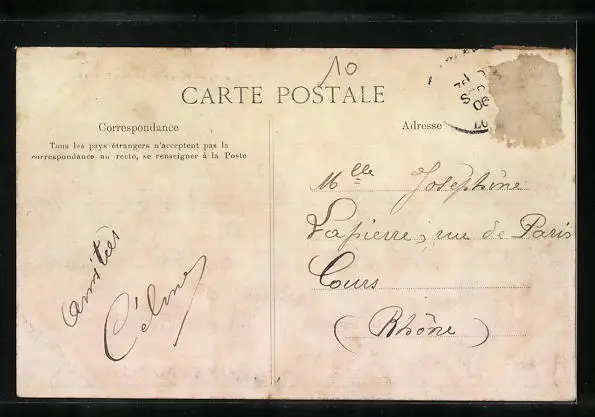 10
CARTE POSTALE
Correspondance
Tous les pays étrangers n'acceptent pas la
correspondance au recto, se renseigner à la Poste
Adresse
SEP
06
Mlle Joséphine
Lapierre, rue de Paris
Cours
(Rhône)
amitiés
Céline